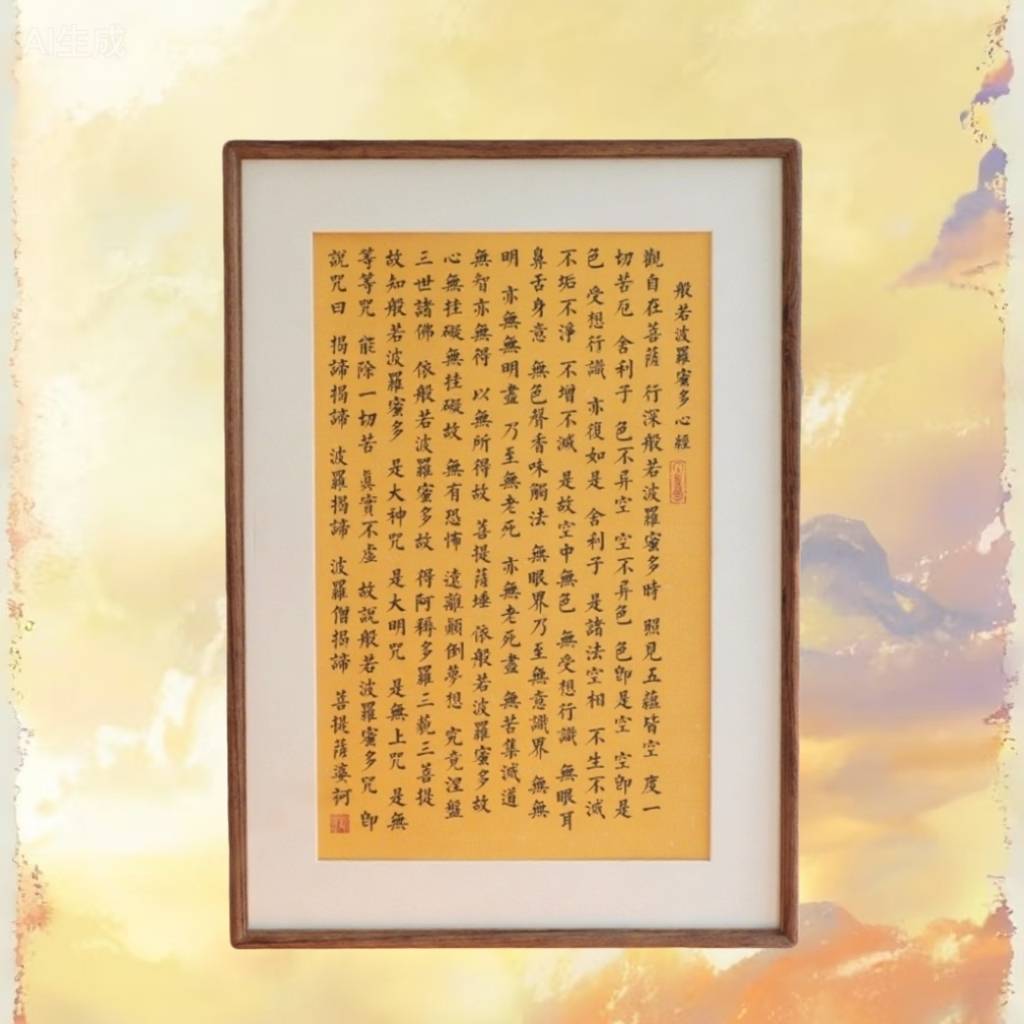 AI生成
般若波羅蜜多心經
觀自在菩薩 行深般若波羅蜜多時 照見五蘊皆空 度一
切苦厄 舍利子 色不异空 空不异色 色即是空 空即是
色 受想行識 亦復如是 舍利子 是諸法空相 不生不滅
不垢不淨 不增不減 是故空中無色 無受想行識 無眼耳
鼻舌身意 無色聲香味觸法 無眼界乃至無意識界 無無
明 亦無無明盡 乃至無老死 亦無老死盡 無苦集滅道
無智亦無得 以無所得故 菩提薩埵 依般若波羅蜜多故
心無挂礙無挂礙故 無有恐怖 遠離顛倒夢想 究竟涅盤
三世諸佛 依般若波羅蜜多故 得阿耨多羅三藐三菩提
故知般若波羅蜜多 是大神咒 是大明咒 是無上咒 是無
等等咒 能除一切苦 真實不虛 故說般若波羅蜜多咒 即
說咒曰 揭諦揭諦 波羅揭諦 波羅僧揭諦 菩提薩婆訶